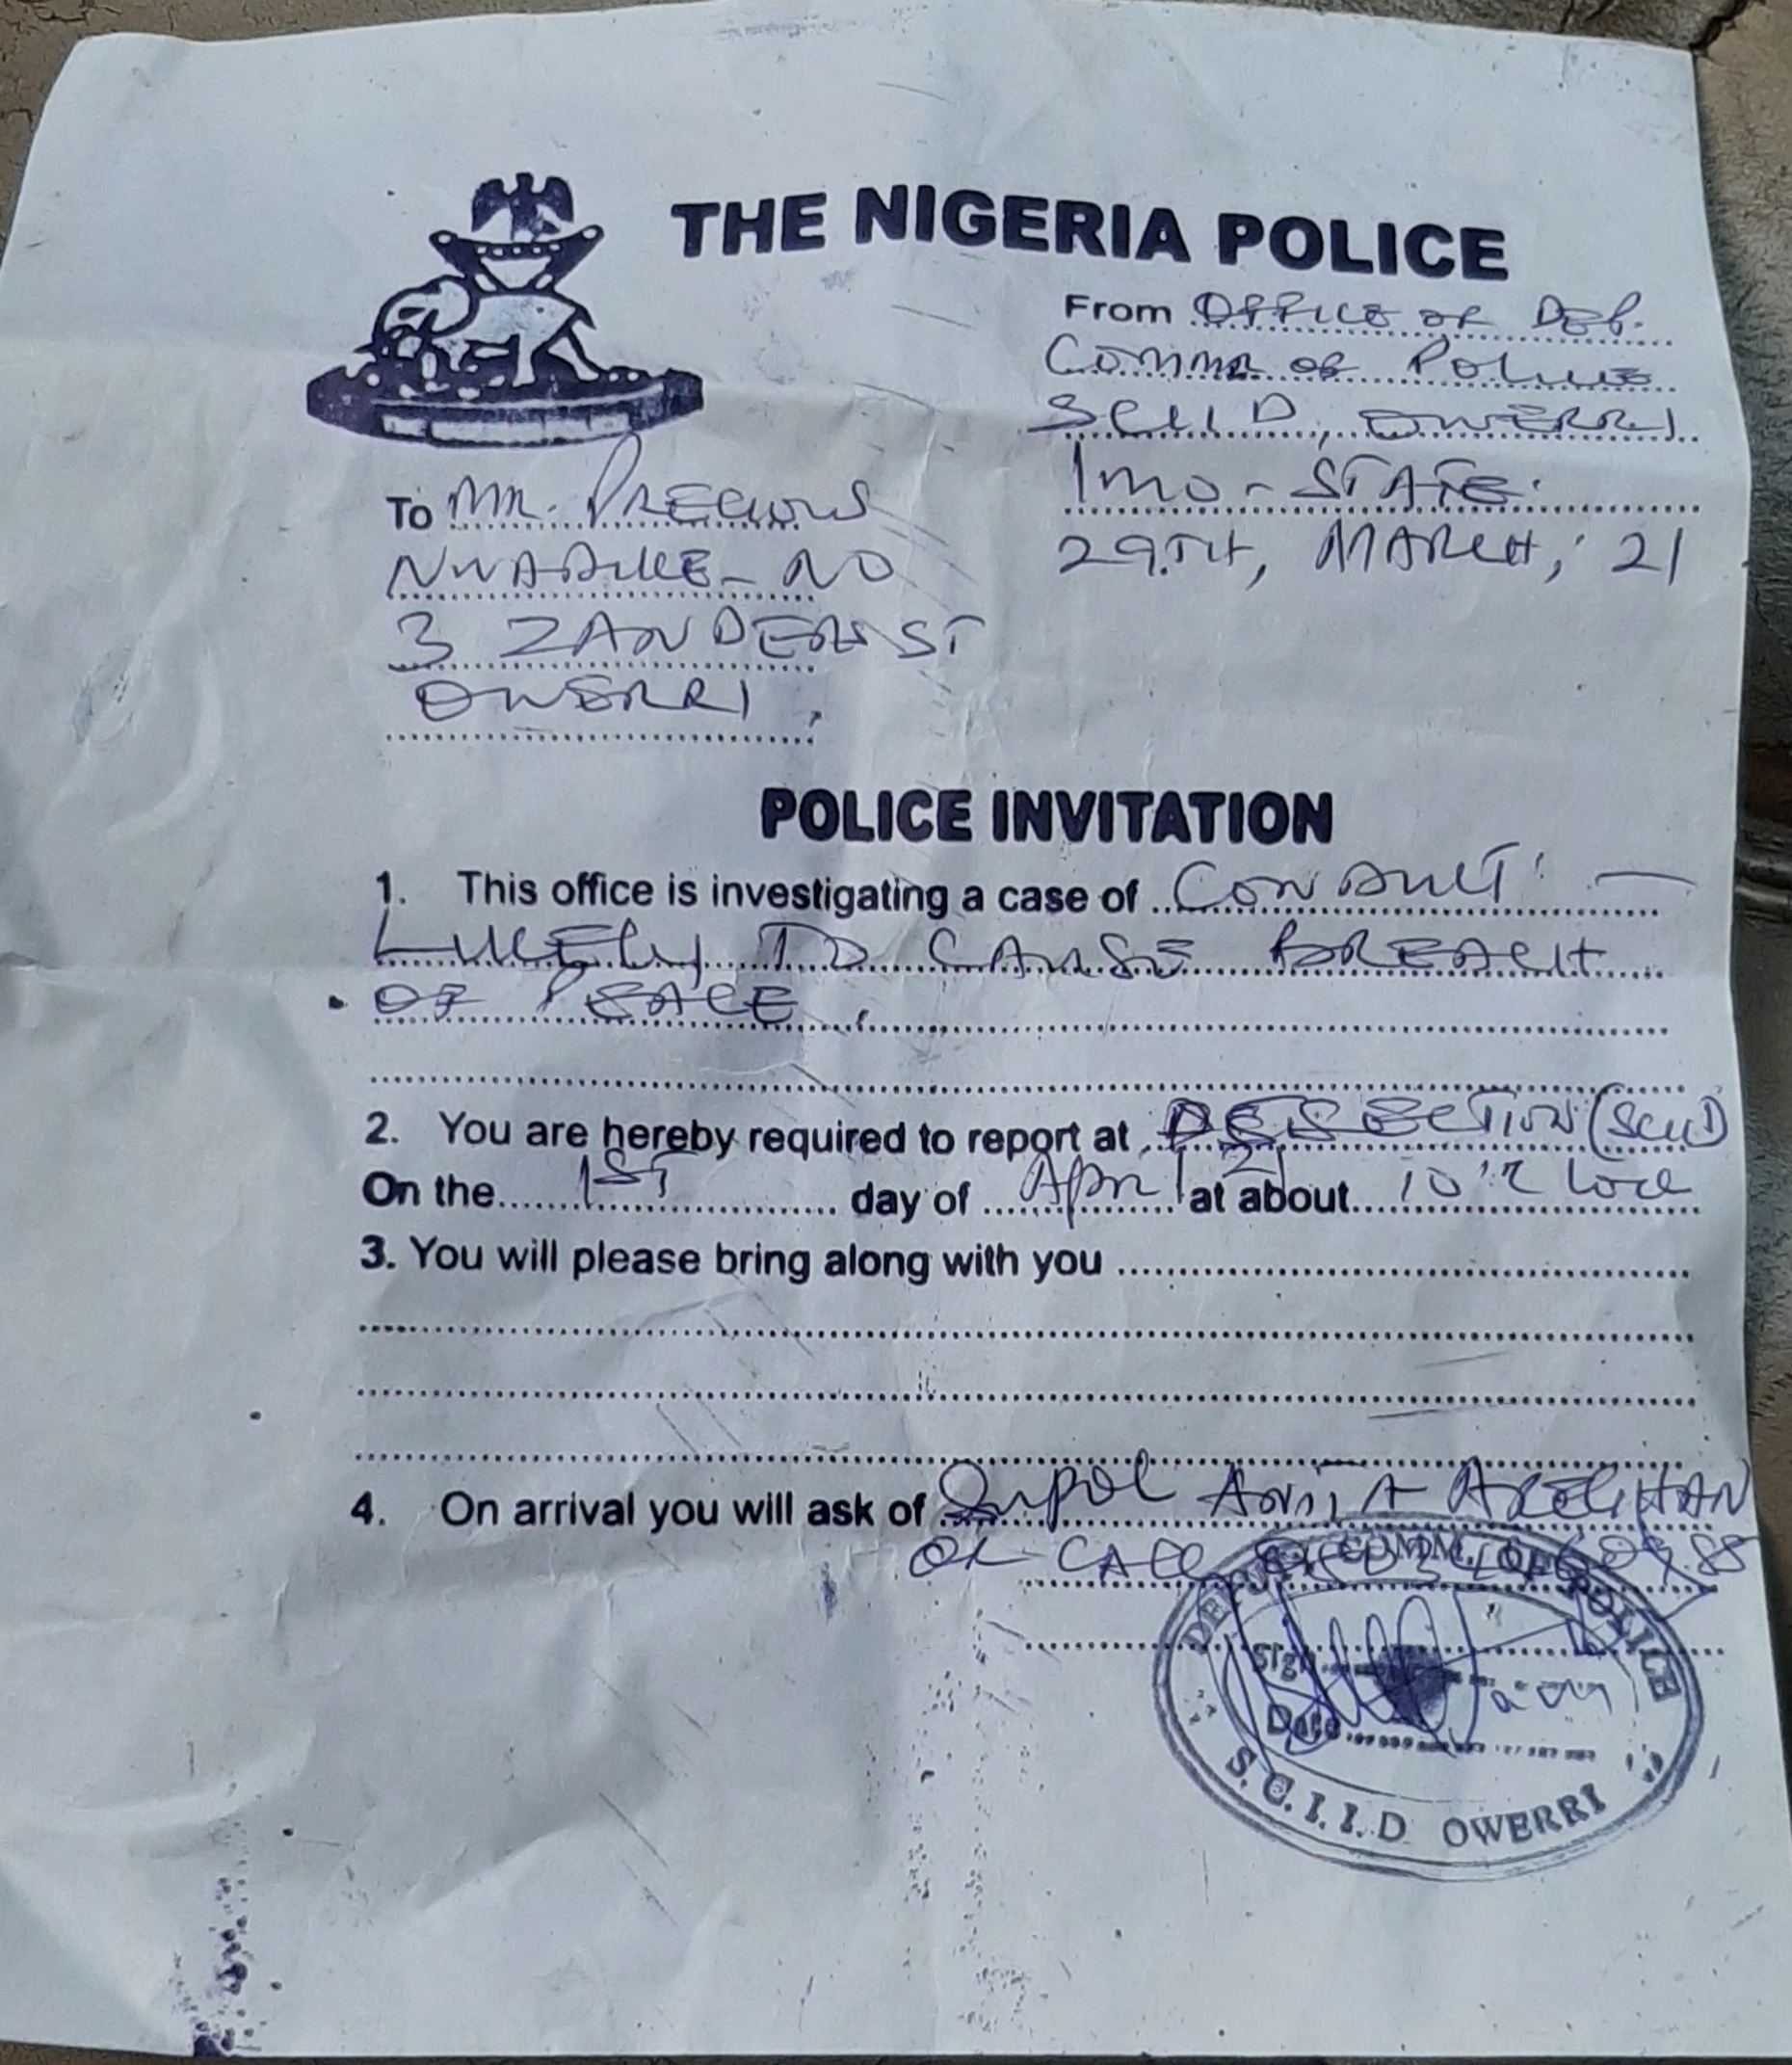 THE NIGERIA POLICE
From OFFICE OF DEP.
COMMR OF POLICE
SCIID, OWERRI
IMO-STATE.
29TH, MARCH, 21
To MR. PRECIOUS
NWADIKE - NO
3 ZANDERS ST
OWERRI,
POLICE INVITATION
1. This office is investigating a case of CONDUCT -
LIKELY TO CAUSE BREACH
OF PEACE.
2. You are hereby required to report at SECTION (SCIID)
On the 1ST day of April 21 at about 10'clock
3. You will please bring along with you
4. On arrival you will ask of
OR CALL
DEPUTY COMM. OF POLICE
Sign
Date
S.C.I.I.D OWERRI